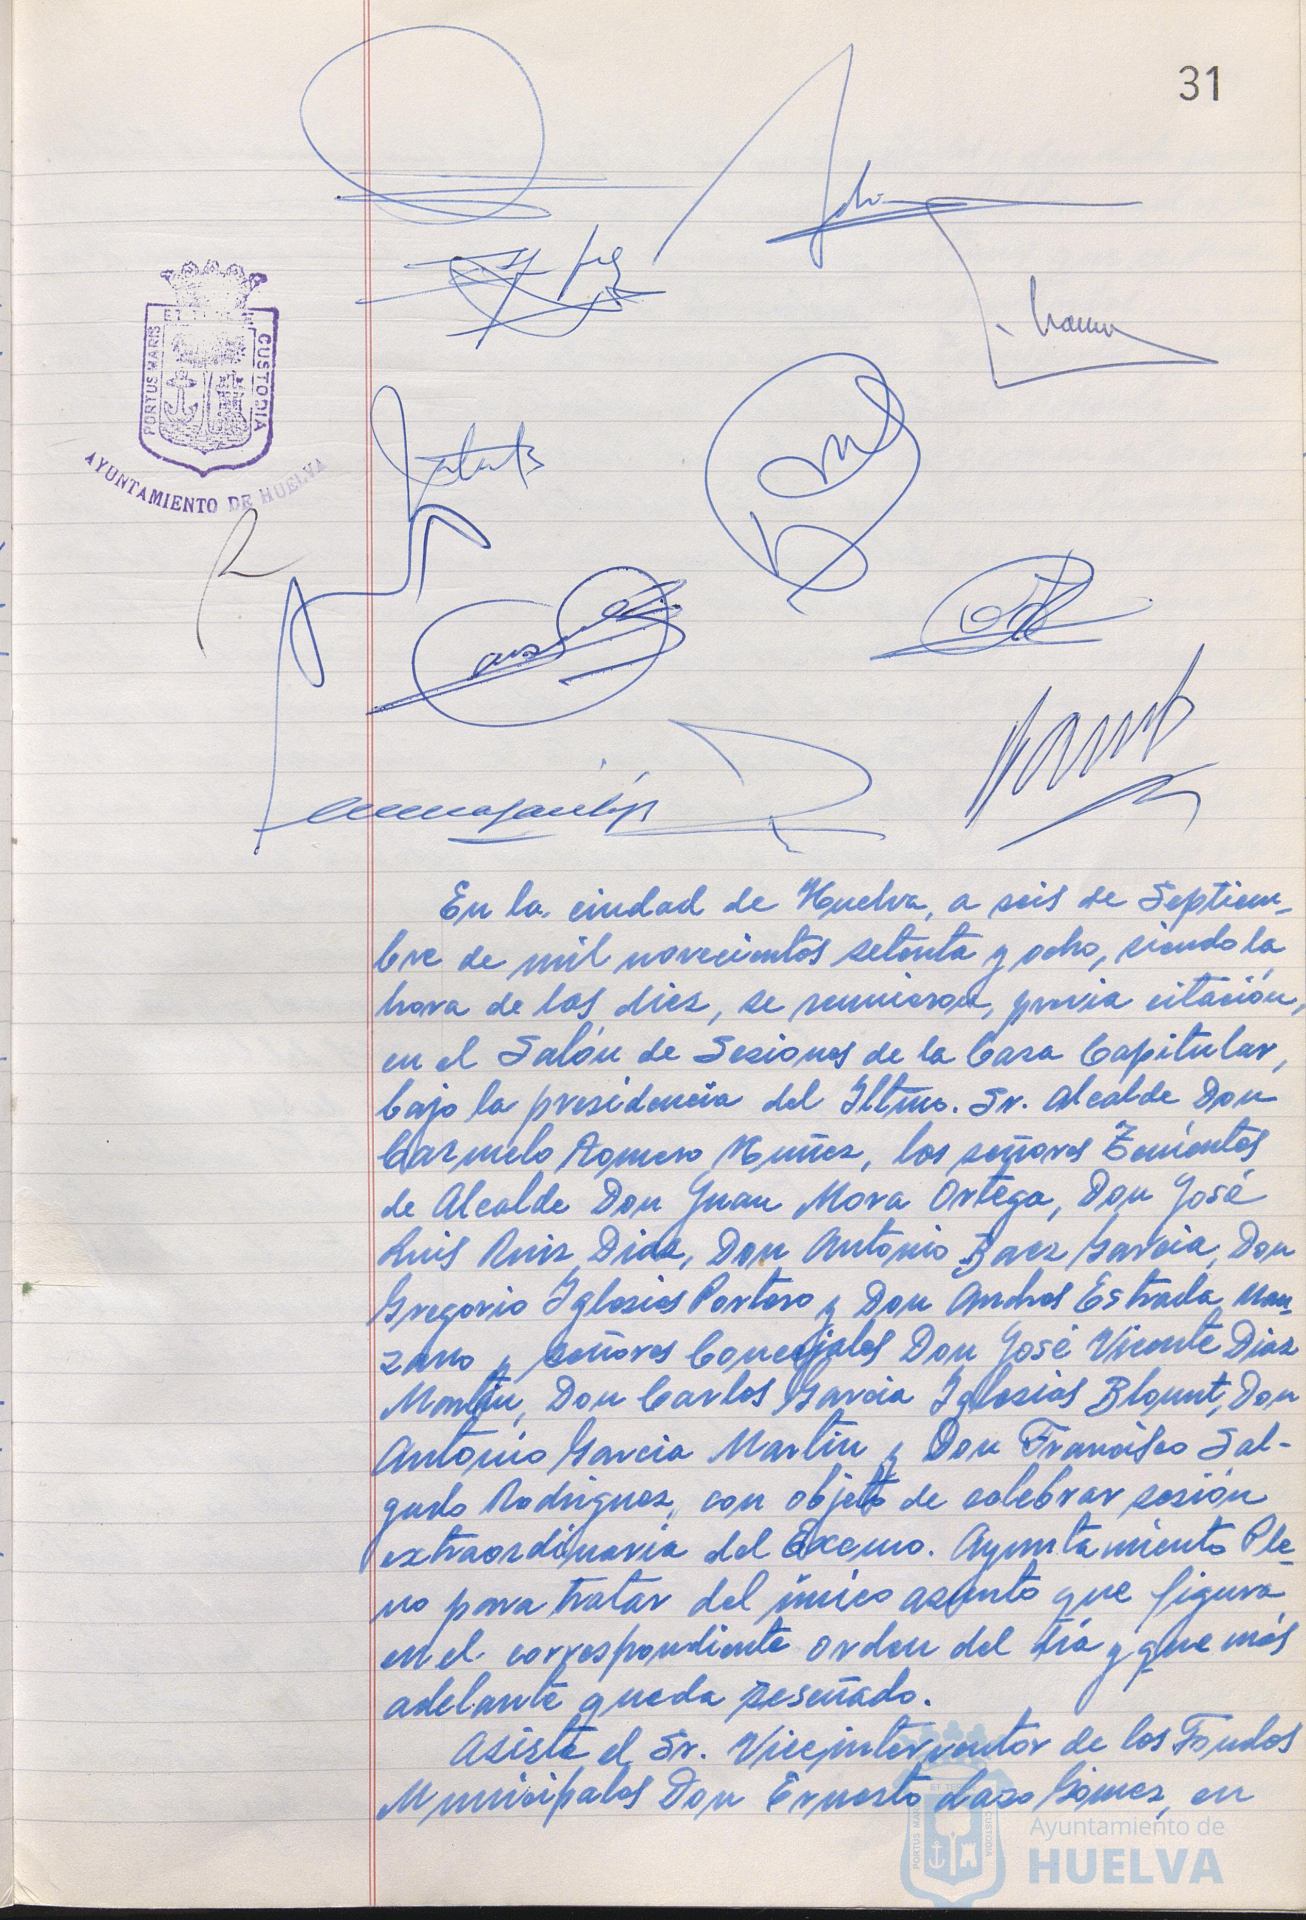 31
ET TERRE
PORTUS MARIS
CUSTODIA
AYUNTAMIENTO DE HUELVA
En la ciudad de Huelva, a seis de Septiem-
bre de mil novecientos setenta y ocho, siendo la
hora de las diez, se reunieron, previa citación,
en el Salón de Sesiones de la Casa Capitular,
bajo la presidencia del Iltmo. Sr. Alcalde Don
Carmelo Romero Muñez, los señores Tenientes
de Alcalde Don Juan Mora Ortega, Don José
Luis Ruiz Diaz, Don Antonio Baez Garcia, Don
Gregorio Iglesias Portero y Don Andres Estrada Man-
zano y señores Concejales Don José Vicente Diaz
Martin, Don Carlos Garcia Iglesias Blount, Don
Antonio Garcia Martin y Don Francisco Sal-
gado Rodriguez, con objeto de celebrar sesión
extraordinaria del Excmo. Ayuntamiento Ple-
no para tratar del único asunto que figura
en el correspondiente orden del día y que más
adelante queda reseñado.
Asiste el Sr. Viceinterventor de los Fondos
Municipales Don Ernesto Laso Gómez, en
ET TERRE
PORTUS MARIS
CUSTODIA
Ayuntamiento de
HUELVA